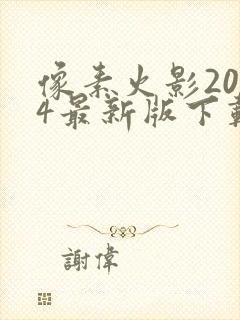 像素火影20
4最新版下載
謝偉